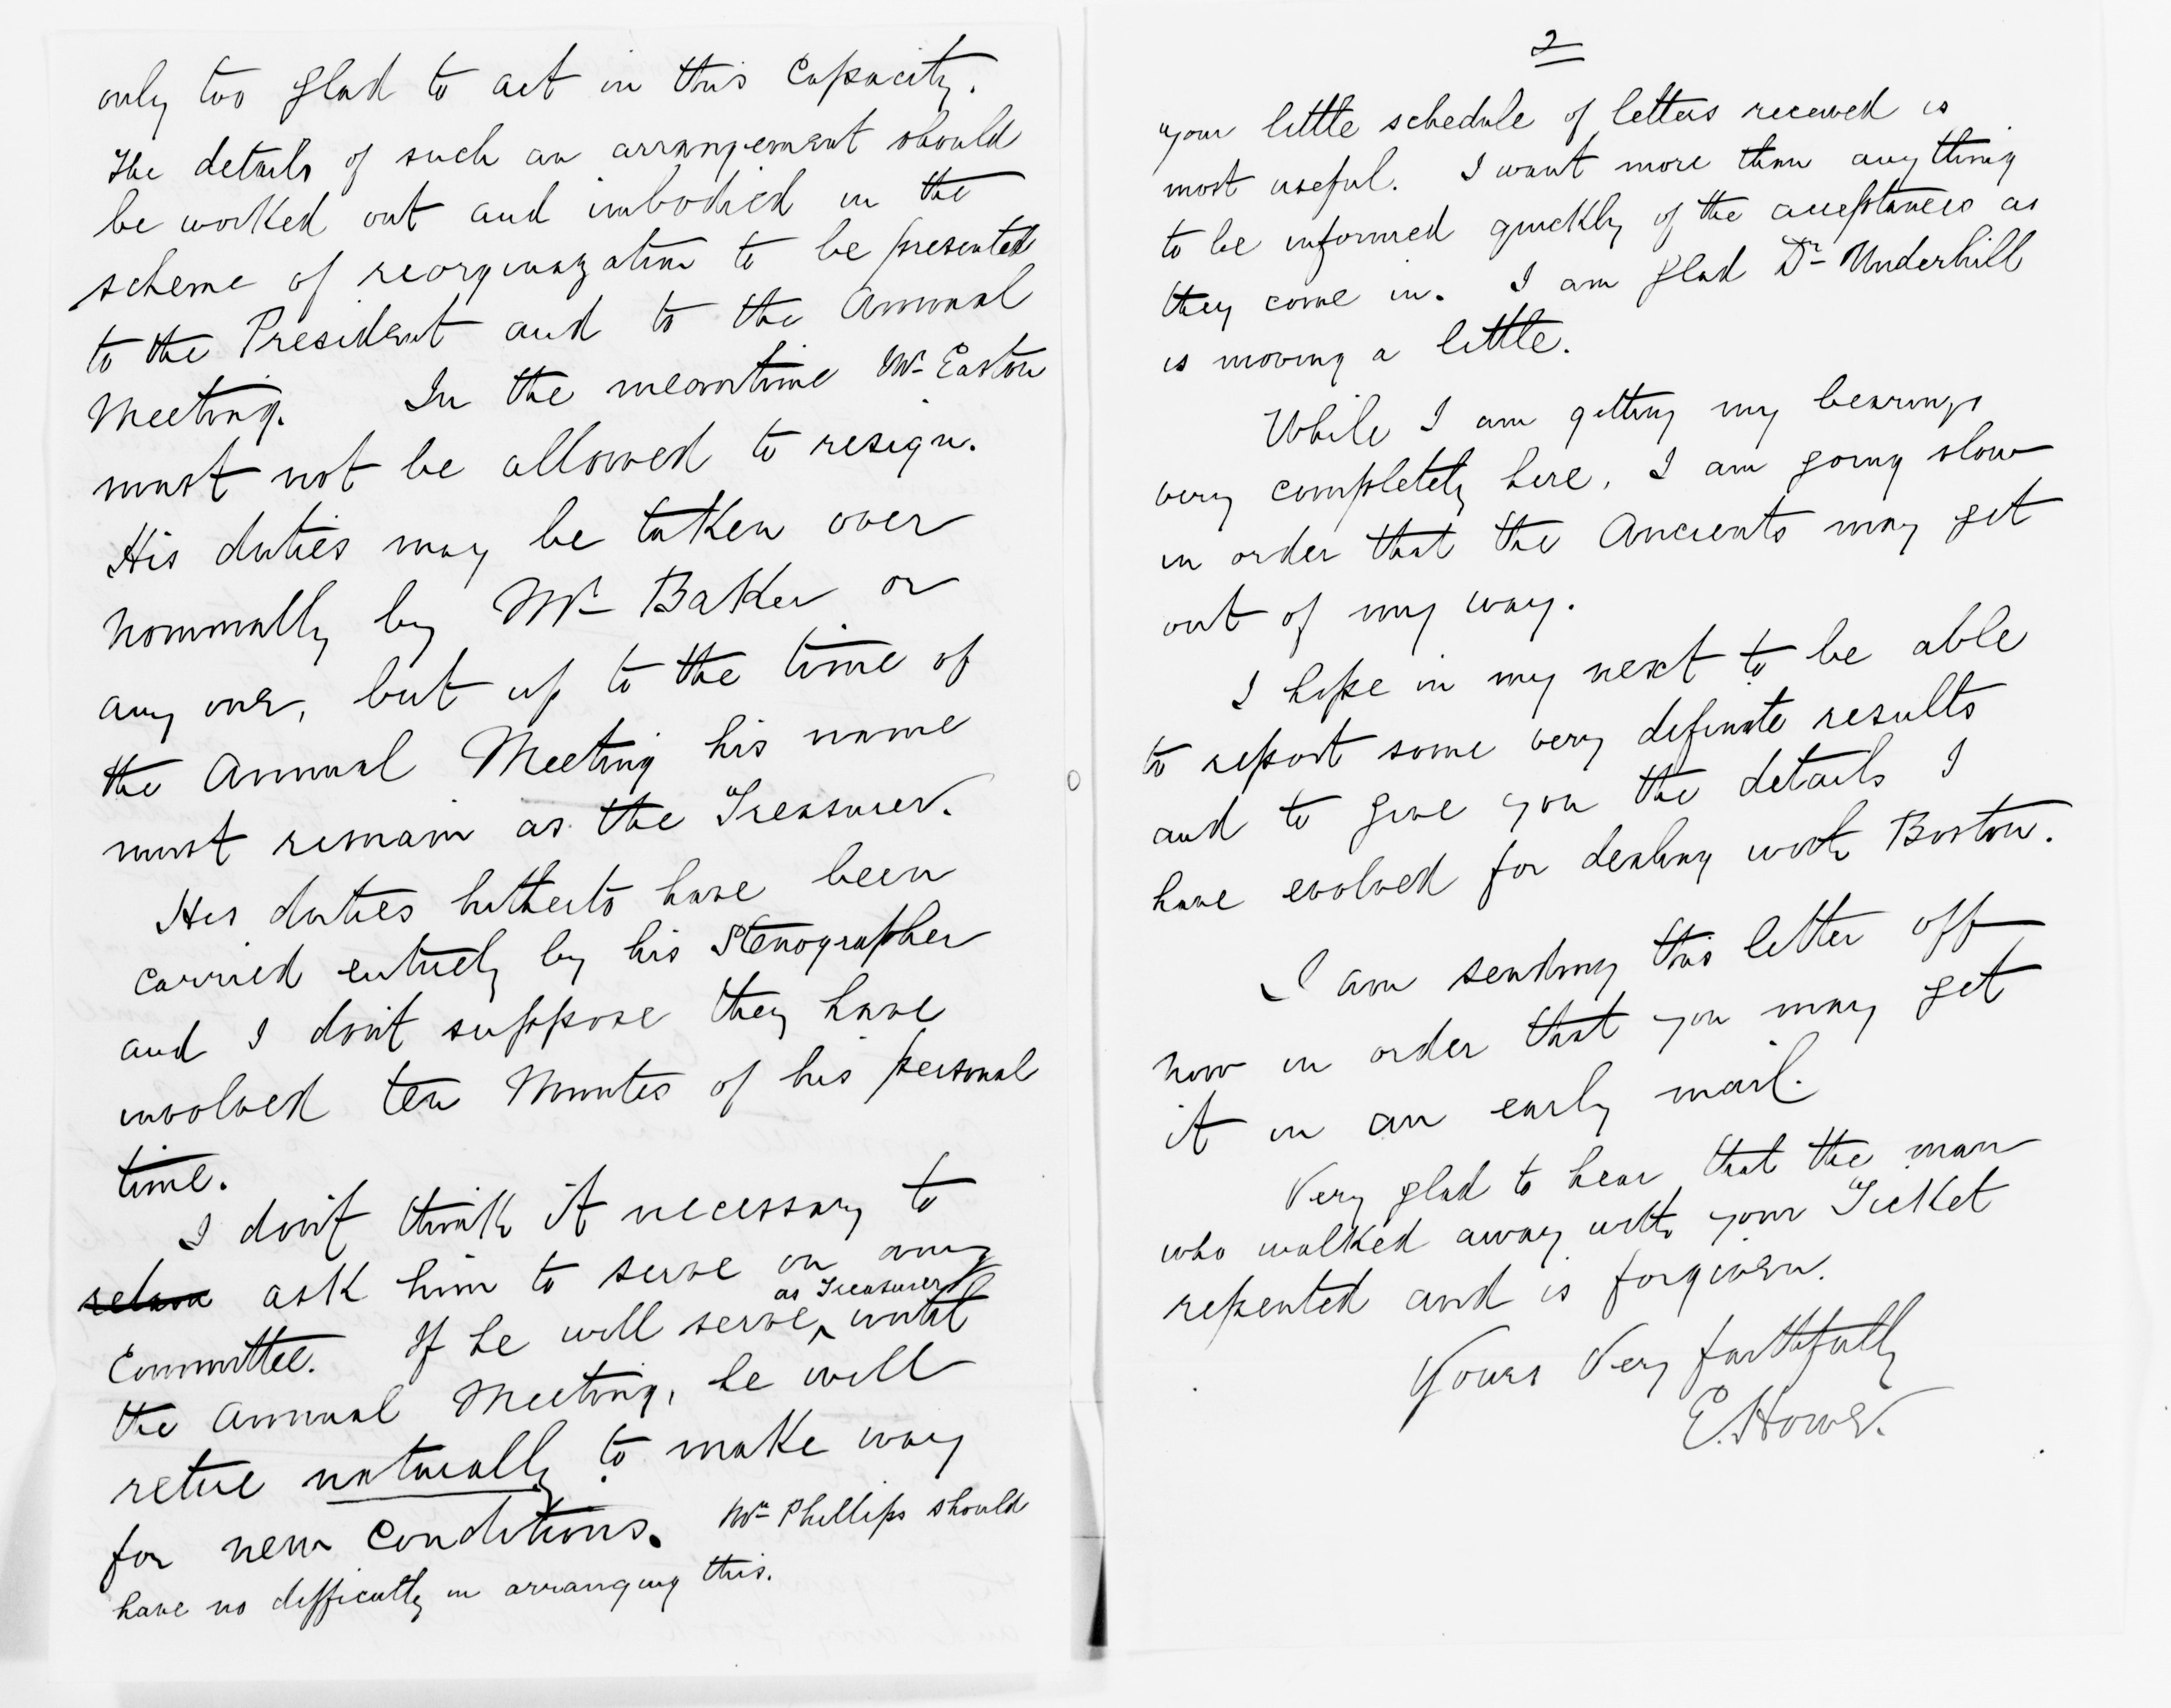 only too glad to act in this Capacity.
The details of such an arrangement should
be worked out and imbodied in the
scheme of reorganization to be presented
to the President and to the Annual
Meeting. In the meantime Mr Easton
must not be allowed to resign.
His duties may be taken over
nominally by Mr Baker or
any one, but up to the time of
the Annual Meeting his name
must remain as the Treasurer.
His duties hitherto have been
carried entirely by his Stenographer
and I don't suppose they have
involved ten Minutes of his personal
time.
I don't think it necessary to
ask him to serve on any
as Treasurer
Committee. If he will serve ^ until
the Annual Meeting, he will
retire naturally to make way
for new Conditions. Mr Phillips should
have no difficulty in arranging this.
2
Your little schedule of letters received is
most useful. I want more than anything
to be informed quickly of the acceptances as
they come in. I am glad Dr Underhill
is moving a little.
While I am getting my bearings
very completely here, I am going slow
in order that the Ancients may get
out of my way.
I hope in my next to be able
to report some very definate results
and to give you the details I
have evolved for dealing with Boston.
I am sending this letter off
now in order that you may get
it in an early mail.
Very glad to hear that the man
who walked away with your Ticket
repented and is forgiven.
Yours Very faithfully
E. Howe.